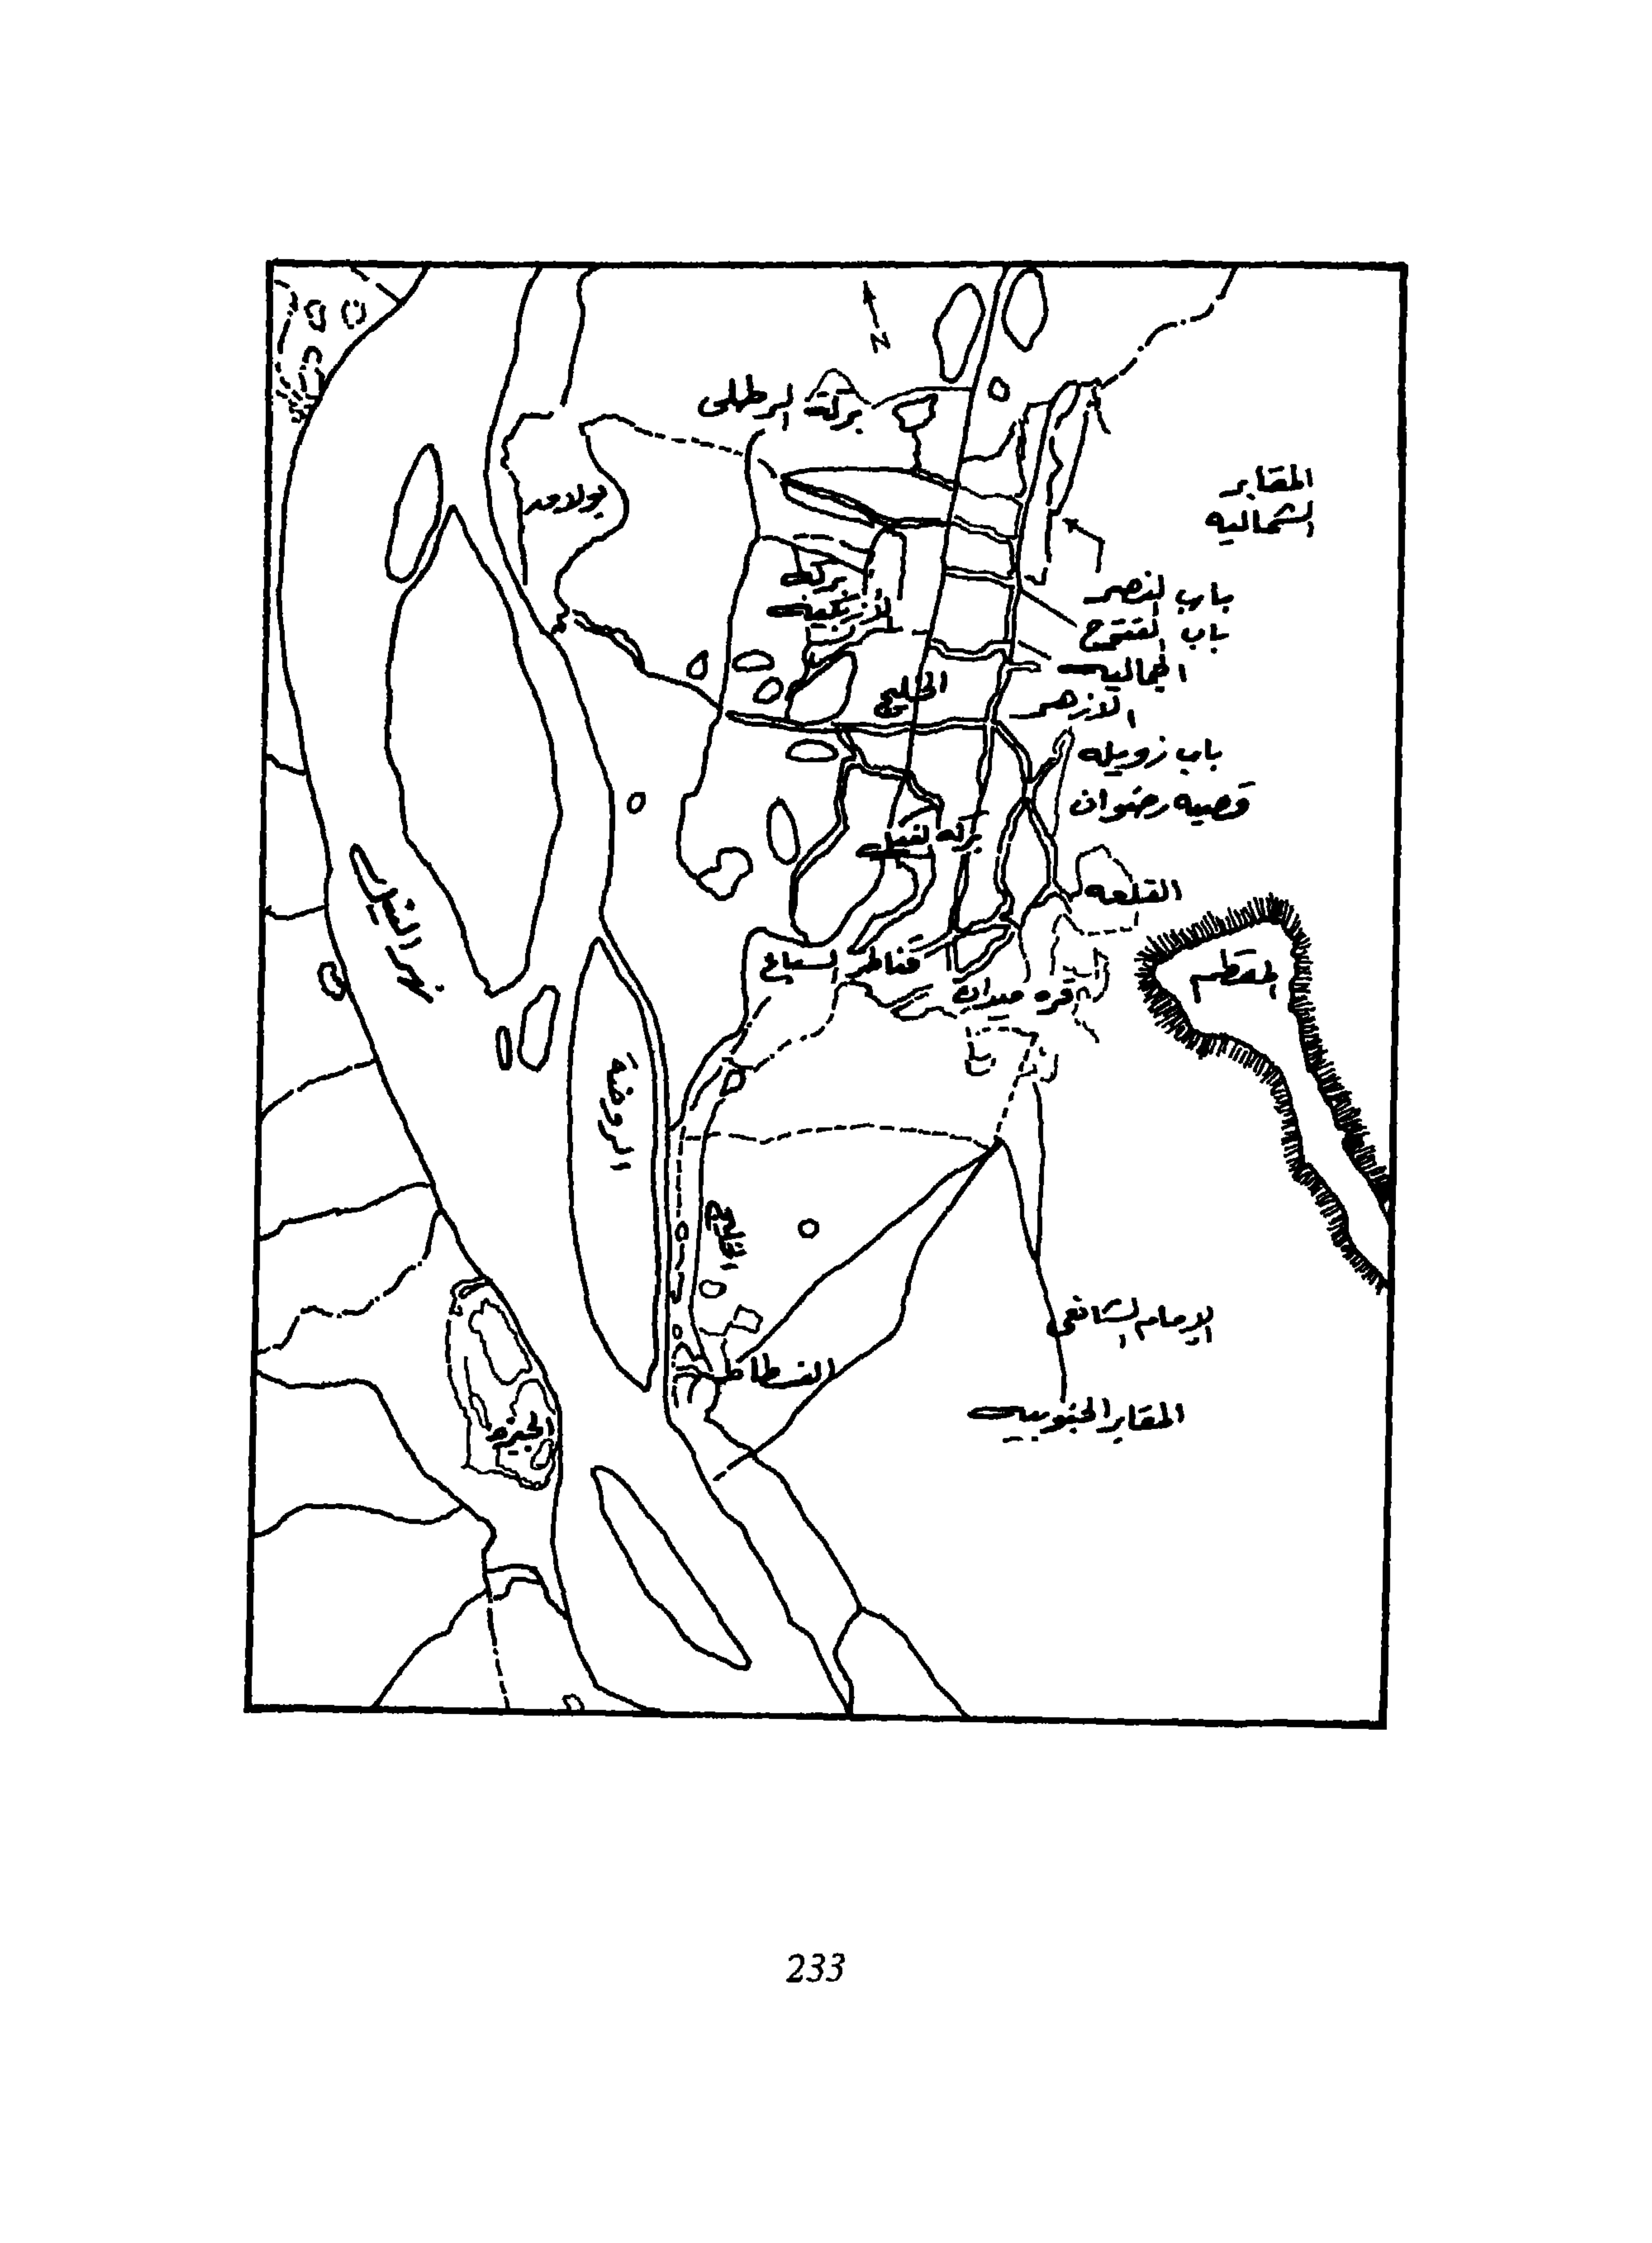 N
بركة الرطلى
المقابر
الشماليه
بولاق
بركه
الأزبكيه
باب النصر
باب الفتوح
الجماليه
الخليج
الازهر
باب زويله
قصبه رضوان
بركه الفيل
القلعه
نهر النيل
قناطر السباع
المقطم
قره ميدان
الروضة
الخليج
الإمام الشافعى
الفسطاط
المقابر الجنوبيه
الجيزه
233